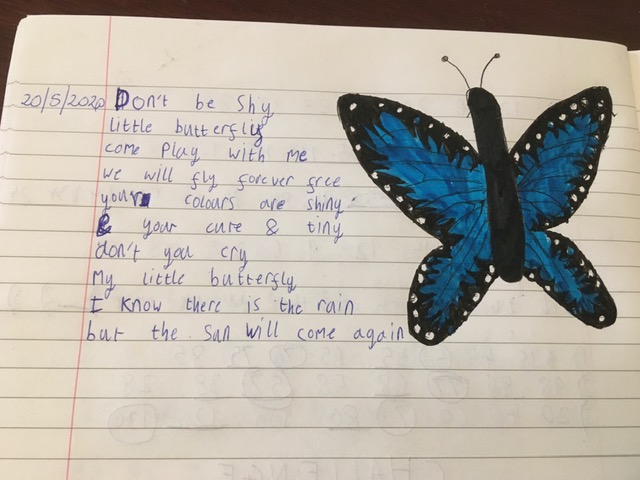 20/5/2020 Don't be shy
little butterfly
come play with me
we will fly forever free
your colours are shiny
& your cute & tiny
don't you cry
My little butterfly
I know there is the rain
but the sun will come again